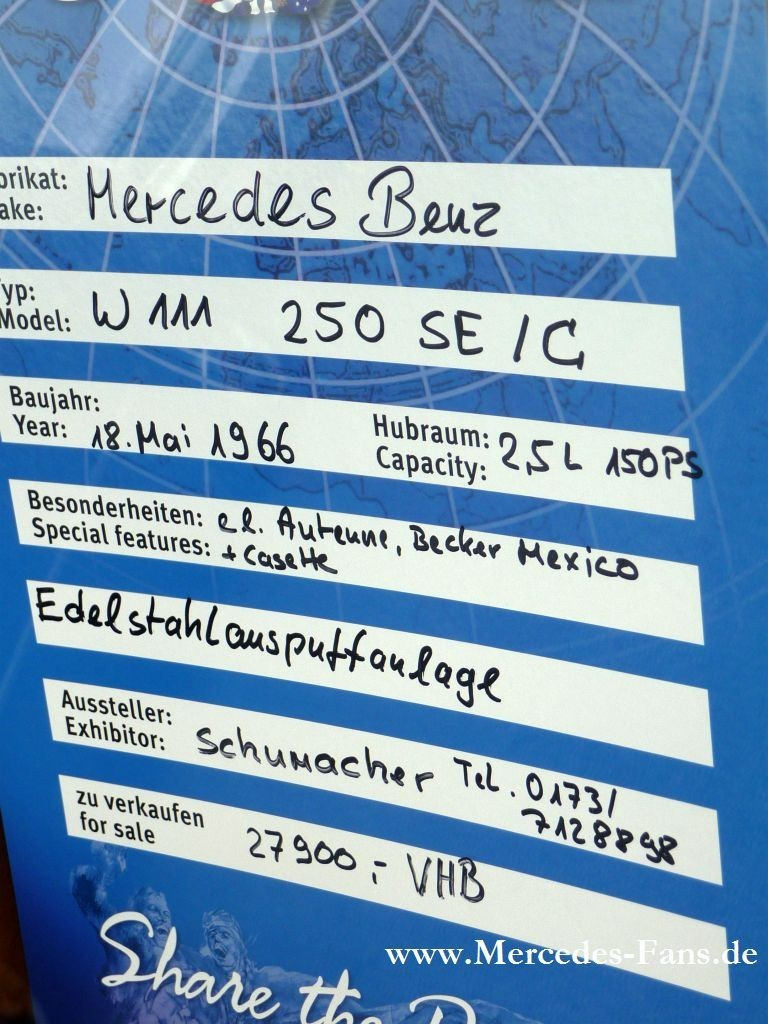 brikat: Mercedes Benz
ake:
yp: W 111 250 SE/C
Model:
Baujahr:
Year: 18. Mai 1966
Hubraum: 2,5 L 150PS
Capacity:
Besonderheiten: el. Antenne, Becker Mexico
Special features: + Casette
Edelstahlauspuffanlage
Aussteller:
Exhibitor: Schumacher Tel. 0173/
7128898
zu verkaufen
for sale 27900,- VHB
Share the
www.Mercedes-Fans.de